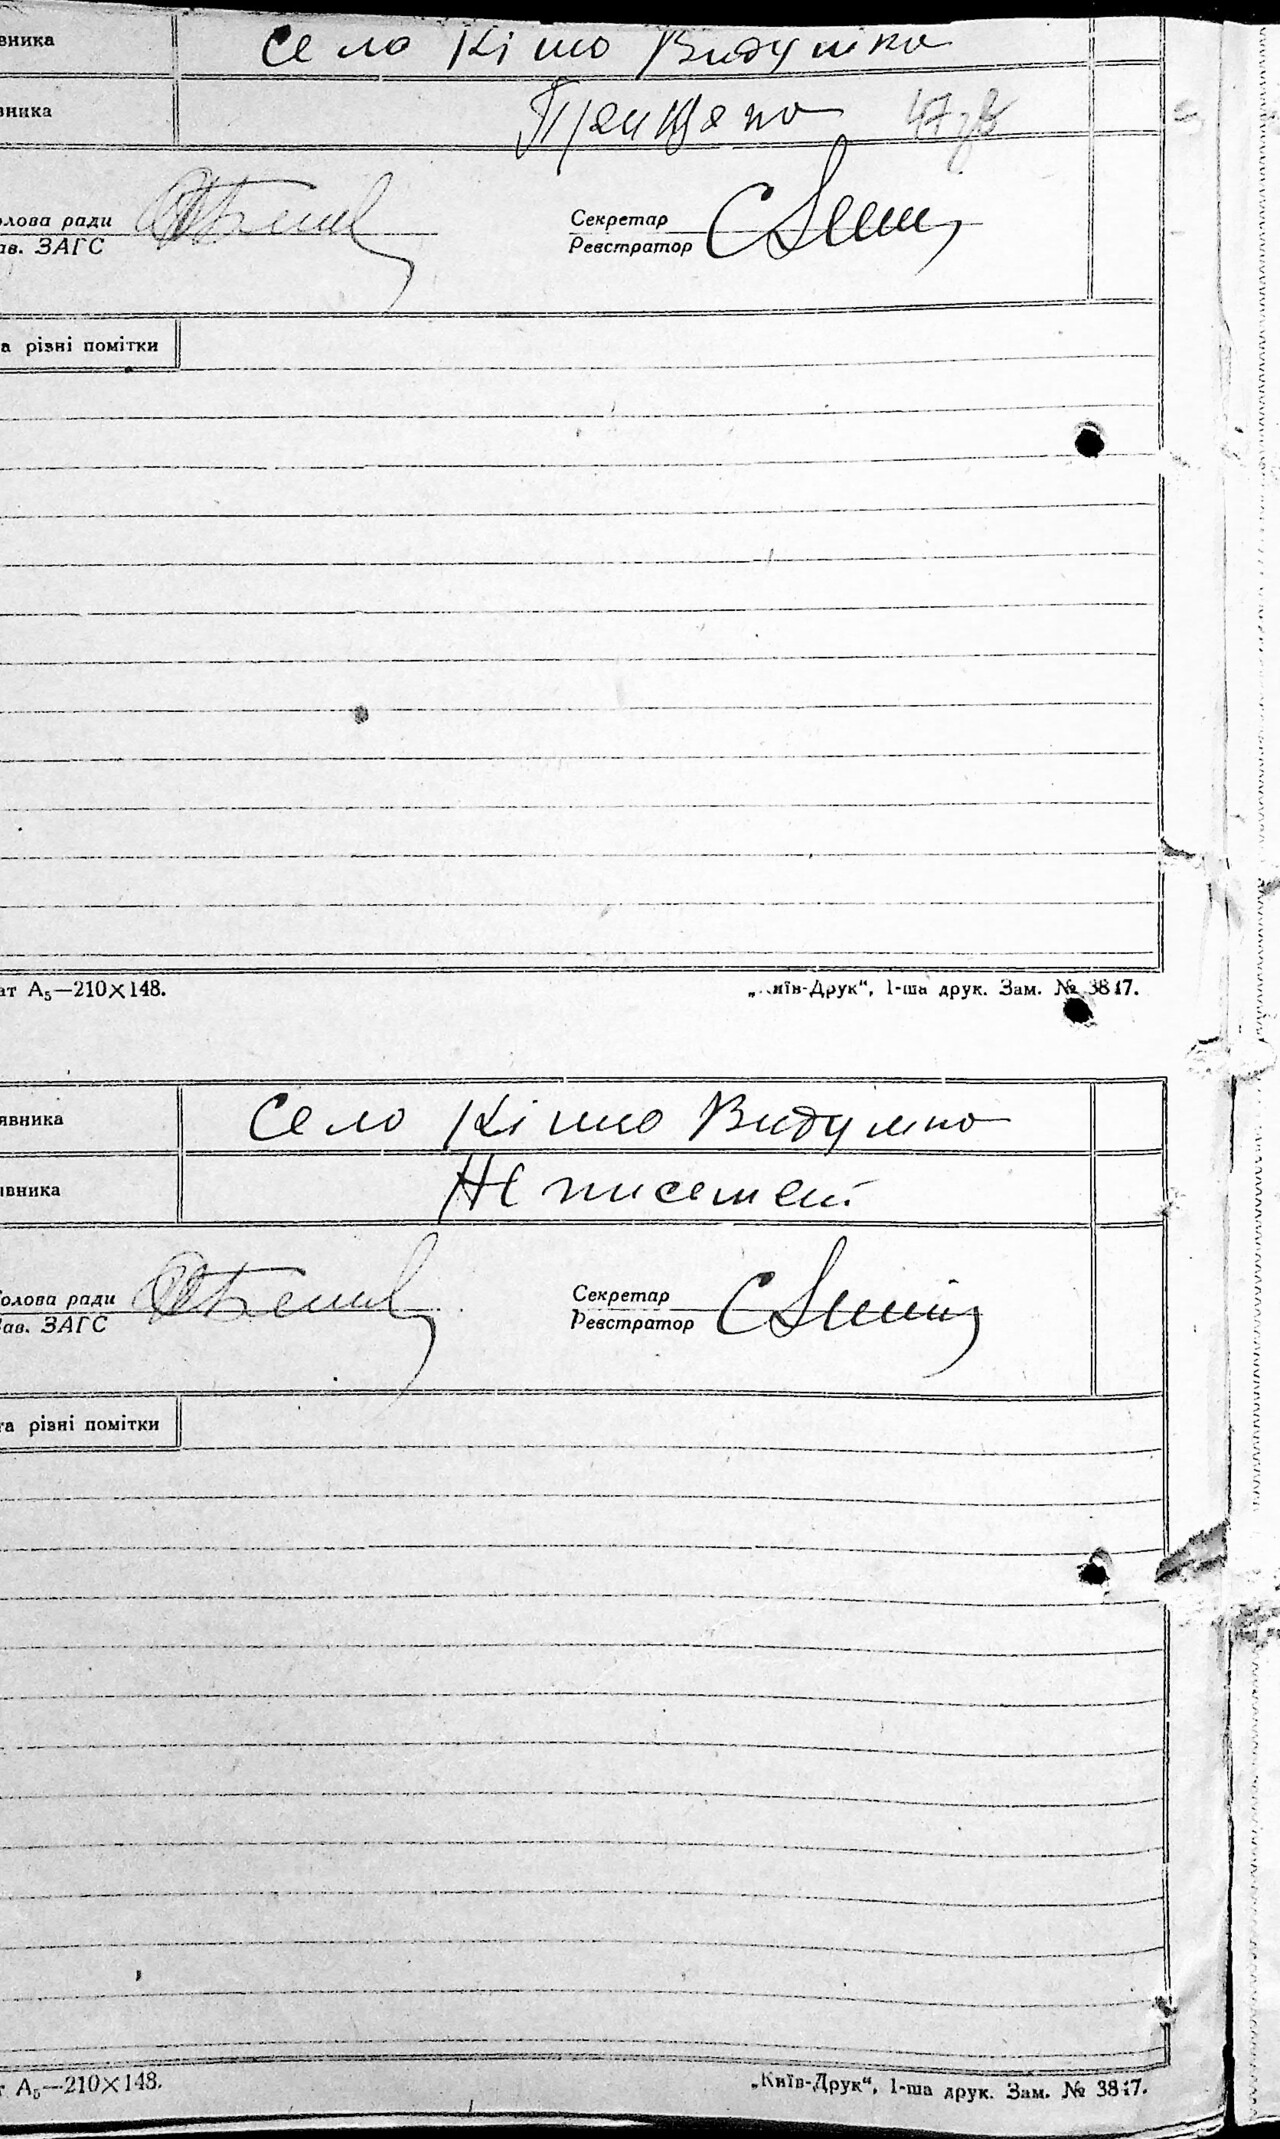 вника
Село Кішо Видумка
вника
олова ради
ав. ЗАГС
Секретар
Реєстратор
а різні помітки
ат А₅—210×148.
„Київ-Друк“, 1-ша друк. Зам. № 3847.
явника
Село Кішо Видумка
ивника
Не писемені
олова ради
Зав. ЗАГС
Секретар
Реєстратор
та різні помітки
т А₅—210×148.
„Київ-Друк“, 1-ша друк. Зам. № 3847.